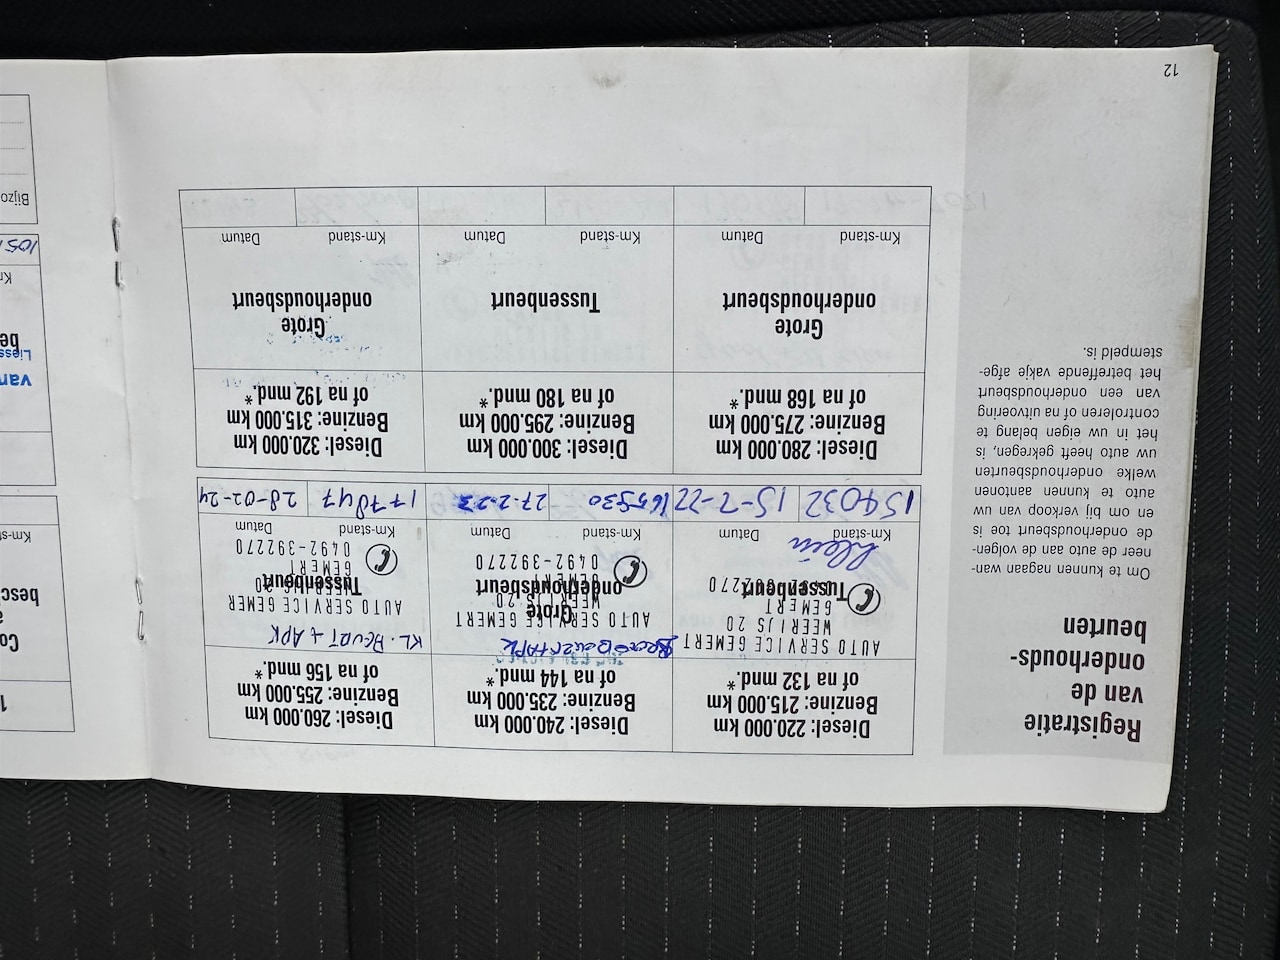 12
Registratie
van de
onderhouds-
beurten
Om te kunnen nagaan wan-
neer de auto aan de volgen-
de onderhoudsbeurt toe is
en om bij verkoop van uw
auto te kunnen aantonen
welke onderhoudsbeurten
uw auto heeft gekregen, is
het in uw eigen belang te
controleren of na uitvoering
van een onderhoudsbeurt
het betreffende vakje afge-
stempeld is.
Diesel: 220.000 km
Benzine: 215.000 km
of na 132 mnd.*
AUTO SERVICE GEMERT
WEERIJS 20
GEMERT
Tussenbeurt
klein
Km-stand
Datum
154032
15-7-22
Diesel: 240.000 km
Benzine: 235.000 km
of na 144 mnd.*
AUTO SERVICE GEMERT
WEERIJS 20
GEMERT
0492-392270
Grote
onderhoudsbeurt
Km-stand
Datum
27-2-23
Diesel: 260.000 km
Benzine: 255.000 km
of na 156 mnd.*
KL. Beurt + APK
AUTO SERVICE GEMER
WEERIJS 20
GEMERT
0492-392270
Tussenbeurt
Km-stand
Datum
177847
28-02-24
Diesel: 280.000 km
Benzine: 275.000 km
of na 168 mnd.*
Grote
onderhoudsbeurt
Km-stand
Datum
Diesel: 300.000 km
Benzine: 295.000 km
of na 180 mnd.*
Tussenbeurt
Km-stand
Datum
Diesel: 320.000 km
Benzine: 315.000 km
of na 192 mnd.*
Grote
onderhoudsbeurt
Km-stand
Datum
1
Co
besc
Km-s
van
Liess
be
Bijzo